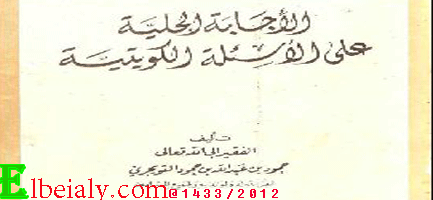 الأجابة الجلية
على الأسئلة الكويتية
تأليف
الفقير إلى الله تعالى
حمود بن عبد الله بن حمود التويجري
Elbeialy.com@1433/2012